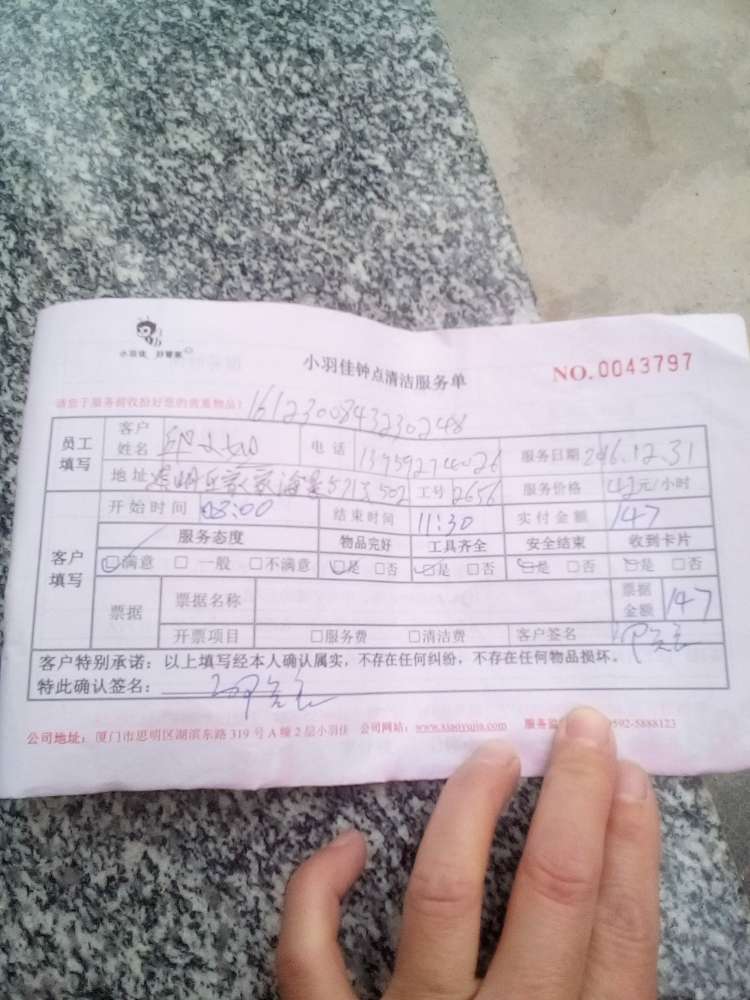 小羽佳 好管家
小羽佳钟点清洁服务单
NO.0043797
请您于服务前收拾好您的贵重物品!
1612300843230248
员工填写 客户姓名 电话 13959274026 服务日期 2016.12.31
地址 5713502 工号 2656 服务价格 42元/小时
客户填写 开始时间 08:00 结束时间 11:30 实付金额 147
服务态度 物品完好 工具齐全 安全结束 收到卡片
☑满意 □一般 □不满意 ☑是 □否 ☑是 □否 ☑是 □否 ☑是 □否
票据 票据名称 票据金额 147
开票项目 □服务费 □清洁费 客户签名
客户特别承诺：以上填写经本人确认属实，不存在任何纠纷，不存在任何物品损坏。
特此确认签名：
公司地址：厦门市思明区湖滨东路319号A幢2层小羽佳 公司网站：www.xiaoyujia.com 服务监 0592-5888123